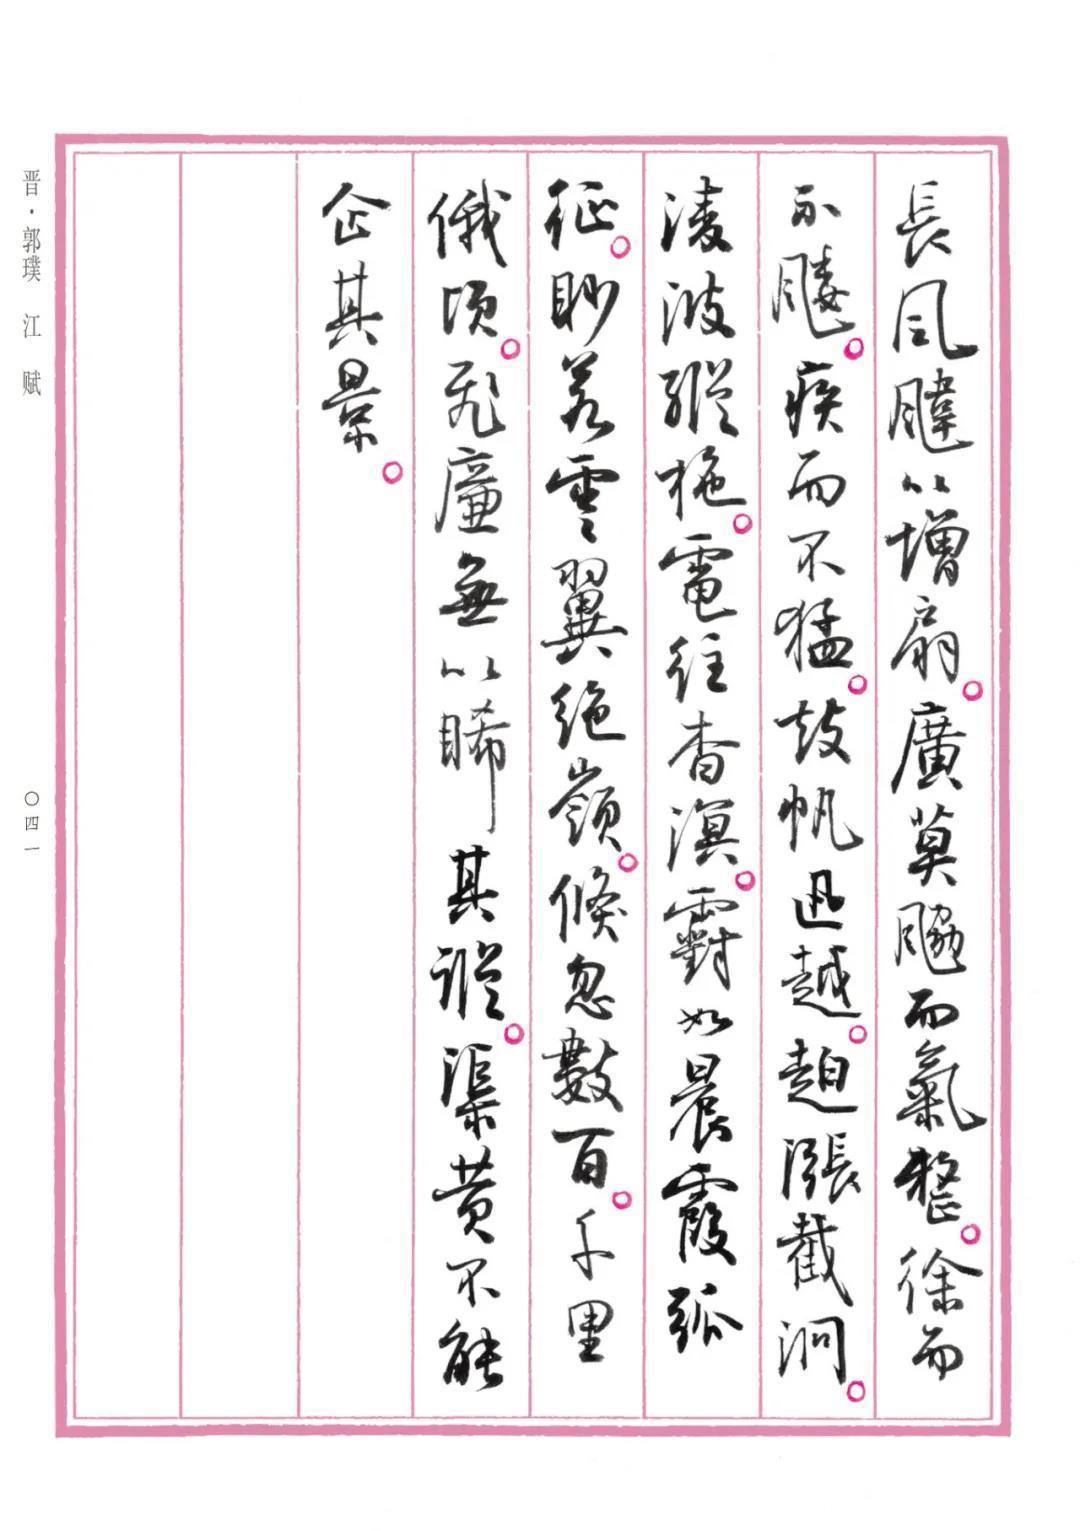 長風颹以增扇。廣莫䬅而氣整。徐而
不䬐。疾而不猛。鼓帆迅越。趠漲截洞。
淩波縱柂。電往杳溟。䨴如晨霞孤
征。眇若雲翼絕嶺。倏忽數百。千里
俄頃。飛廉無以睎其蹤。渠黃不能
企其景。
晋·郭璞 江赋
〇四一